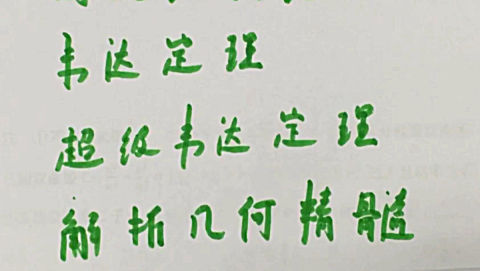 韦达定理
超级韦达定理
解析几何精髓